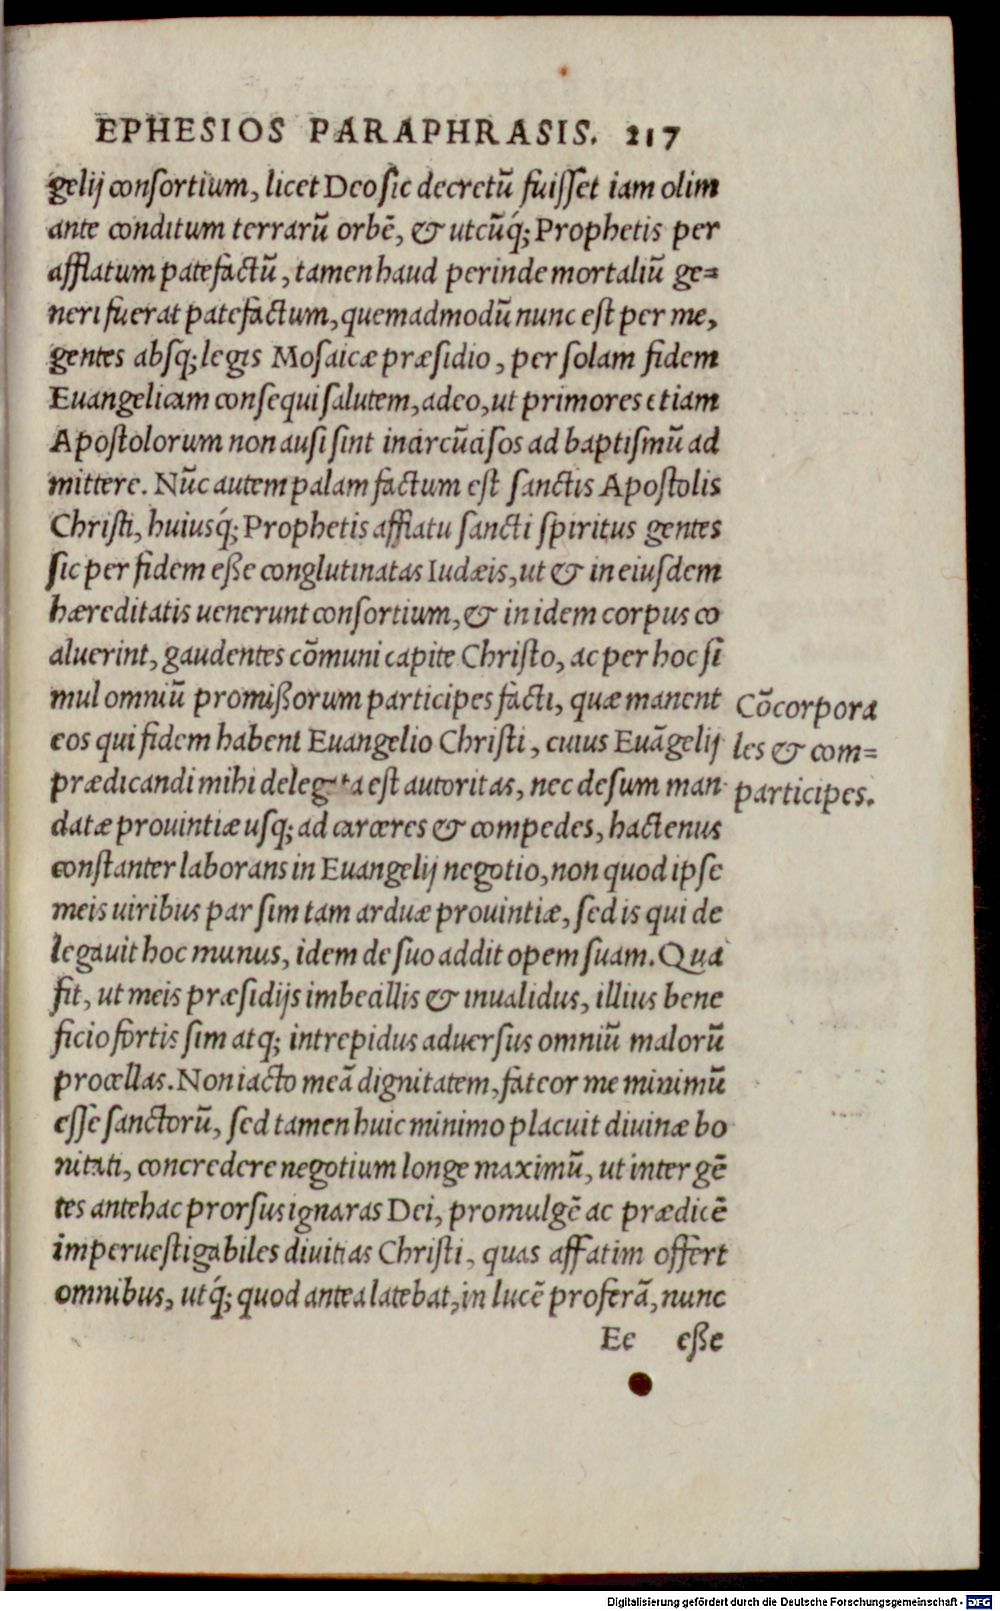 EPHESIOS PARAPHRASIS. 217
gelij consortium, licet Deo sic decretũ fuisset iam olim
ante conditum terrarũ orbẽ, & utcũq́; Prophetis per
afflatum patefactũ, tamen haud perinde mortaliũ ge=
neri fuerat patefactum, quemadmodũ nunc est per me,
gentes absq; legis Mosaicæ præsidio, per solam fidem
Euangelicam consequi salutem, adeo, ut primores etiam
Apostolorum non ausi sint incircũcisos ad baptismũ ad
mittere. Nũc autem palam factum est sanctis Apostolis
Christi, huiusq́; Prophetis afflatu sancti spiritus gentes
sic per fidem eße conglutinatas Iudæis, ut & in eiusdem
hæreditatis uenerunt consortium, & in idem corpus co
aluerint, gaudentes cõmuni capite Christo, ac per hoc si
mul omniũ promißorum participes facti, quæ manent
eos qui fidem habent Euangelio Christi, cuius Euãgelij
prædicandi mihi delegata est autoritas, nec desum man
datæ prouintiæ usq; ad carceres & compedes, hactenus
constanter laborans in Euangelij negotio, non quod ipse
meis uiribus par sim tam arduæ prouintiæ, sed is qui de
legauit hoc munus, idem de suo addit opem suam. Qua
fit, ut meis præsidijs imbecillis & inualidus, illius bene
ficio fortis sim atq; intrepidus aduersus omniũ malorũ
procellas. Non iacto meã dignitatem, fateor me minimũ
esse sanctorũ, sed tamen huic minimo placuit diuinæ bo
nitati, concredere negotium longe maximũ, ut inter gẽ
tes antehac prorsus ignaras Dei, promulgẽ ac prædicẽ
imperuestigabiles diuitias Christi, quas affatim offert
omnibus, utq́; quod antea latebat, in lucẽ proferã, nunc
Ee eße
Cõcorpora
les & com=
participes.
Digitalisierung gefördert durch die Deutsche Forschungsgemeinschaft - DFG